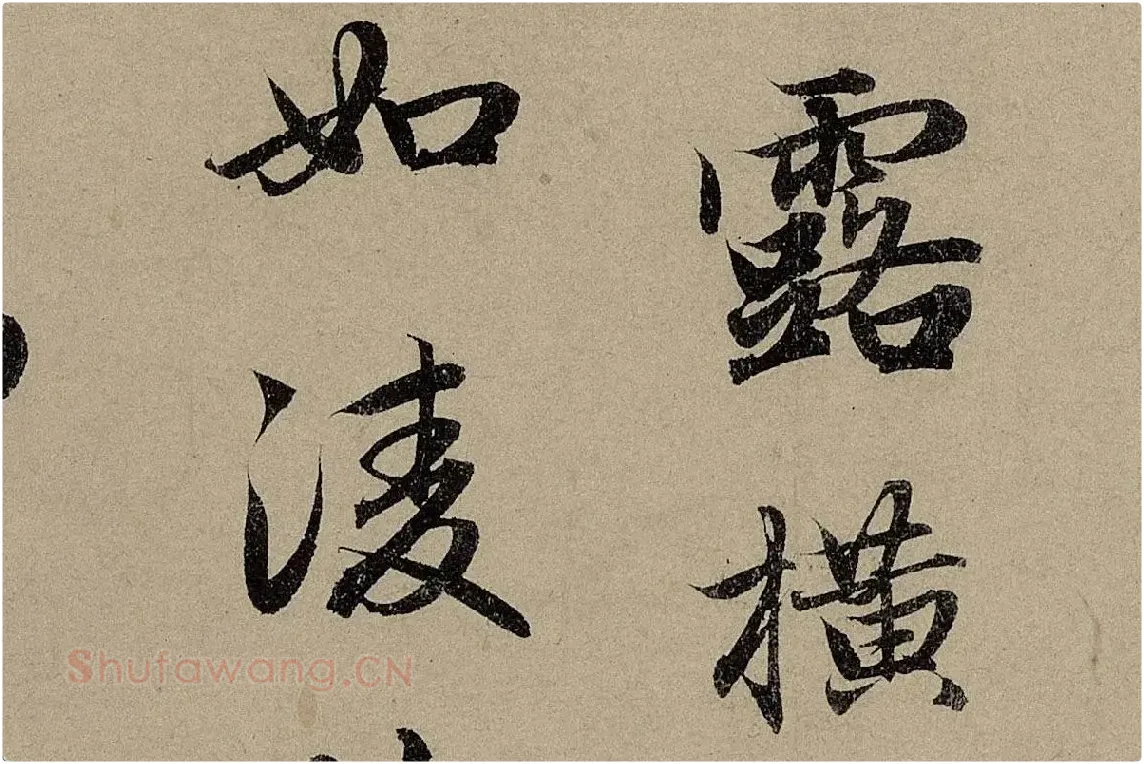 露橫
如凌
Shufawang.CN